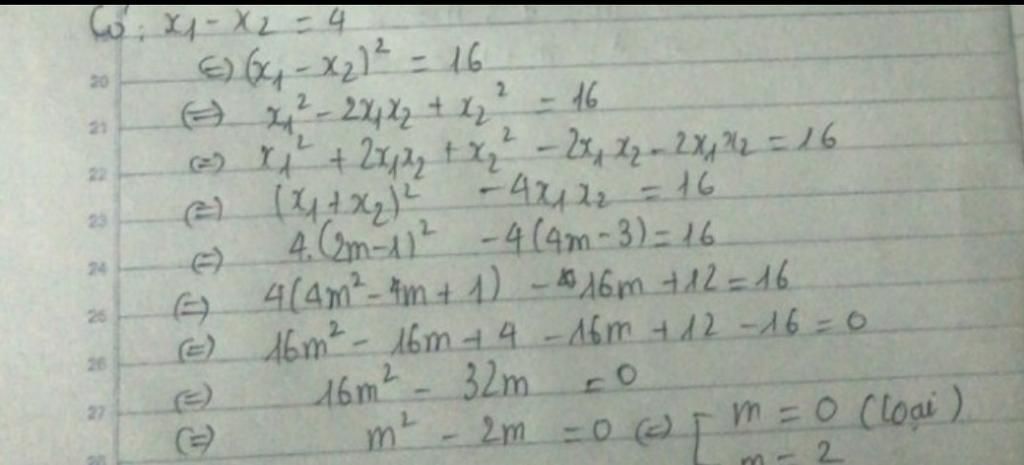 Có: x₁ - x₂ = 4
20 (=) (x₁ - x₂)² = 16
21 (=) x₁² - 2x₁x₂ + x₂² = 16
22 (=) x₁² + 2x₁x₂ + x₂² - 2x₁x₂ - 2x₁x₂ = 16
23 (=) (x₁ + x₂)² - 4x₁x₂ = 16
24 (=) 4.(2m-1)² - 4(4m-3) = 16
25 (=) 4(4m² - 4m + 1) - 16m + 12 = 16
26 (=) 16m² - 16m + 4 - 16m + 12 - 16 = 0
27 (=) 16m² - 32m = 0
(=) m² - 2m = 0 (=) [ m = 0 (loại)
m = 2